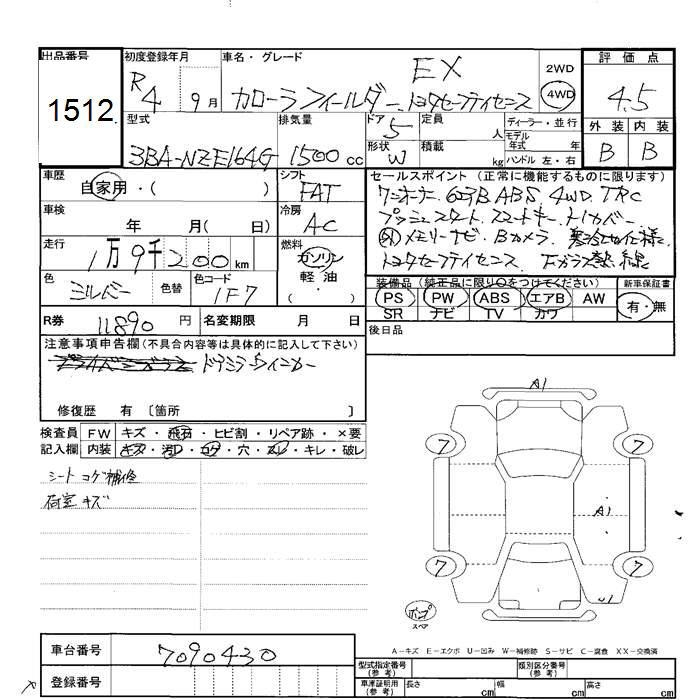 出品番号
1512
初度登録年月
R4 9月
車名・グレード
EX
カローラフィールダー トヨタセーフティセンス
2WD
4WD
評価点
4.5
外装 内装
B B
型式
3BA-NZE164G
排気量
1500 cc
ドア 5
形状 W
定員 人
積載 kg
ディーラー・並行
モデル
年式 年
ハンドル 左・右
車歴
自家用・( )
シフト
FAT
車検
年 月( 日)
冷房
AC
走行
1万9千200km
燃料
ガソリン
軽油
・( )
色
シルバー
色替
色コード
1F7
R券 11890円
名変期限 月 日
セールスポイント (正常に機能するものに限ります)
ワンオーナー ABS 4WD. TRC
プッシュスタート. スマートキー.
メモリーナビ・Bカメラ. 寒冷地仕様
トヨタセーフティセンス.
装備品 (純正品に限り○をつけてください)
PS PW ABS エアB AW
SR ナビ TV カワ
新車保証書
有・無
後日品
注意事項申告欄(不具合内容等は具体的に記入して下さい)
ドアミラーウィンカー
修復歴 有 〔箇所 〕
検査員 FW キズ・飛石・ヒビ割・リペア跡・×要
記入欄 内装 キズ・汚レ・コゲ・穴・スレ・キレ・破レ
シート コゲ補修
荷室 キズ
A1
7 7
A1
7 7
U1
ポンプ
スペア
A-キズ E-エクボ U-凹み W-補修跡 S-サビ C-腐食 XX-交換済
車台番号 7090430
登録番号
型式指定番号
(参考)
類別区分番号
(参考)
車庫証明用
(参考)
長さ cm 幅 cm 高さ cm